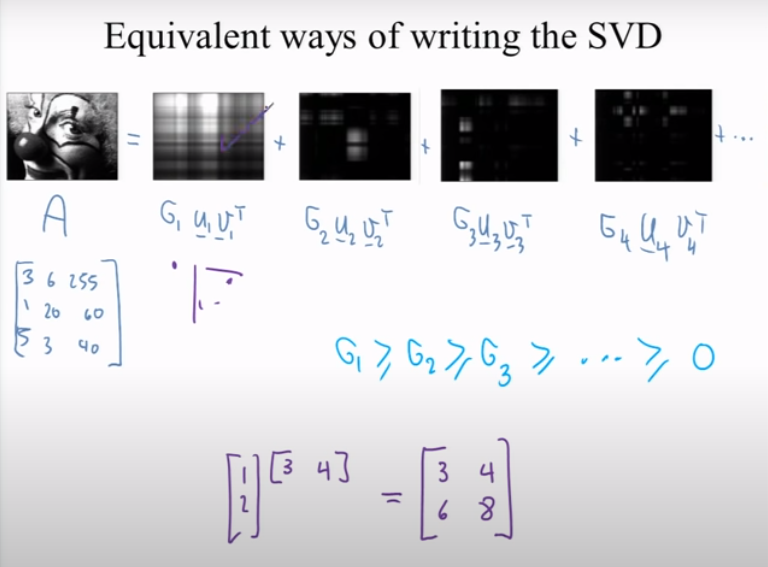 Equivalent ways of writing the SVD
= + + + + ...
A σ₁ u₁ v₁ᵀ σ₂ u₂ v₂ᵀ σ₃ u₃ v₃ᵀ σ₄ u₄ v₄ᵀ
[3 6 255
1 20 60
5 3 40]
σ₁ ≥ σ₂ ≥ σ₃ ≥ ... ≥ 0
[1 [3 4] = [3 4
2] 6 8]